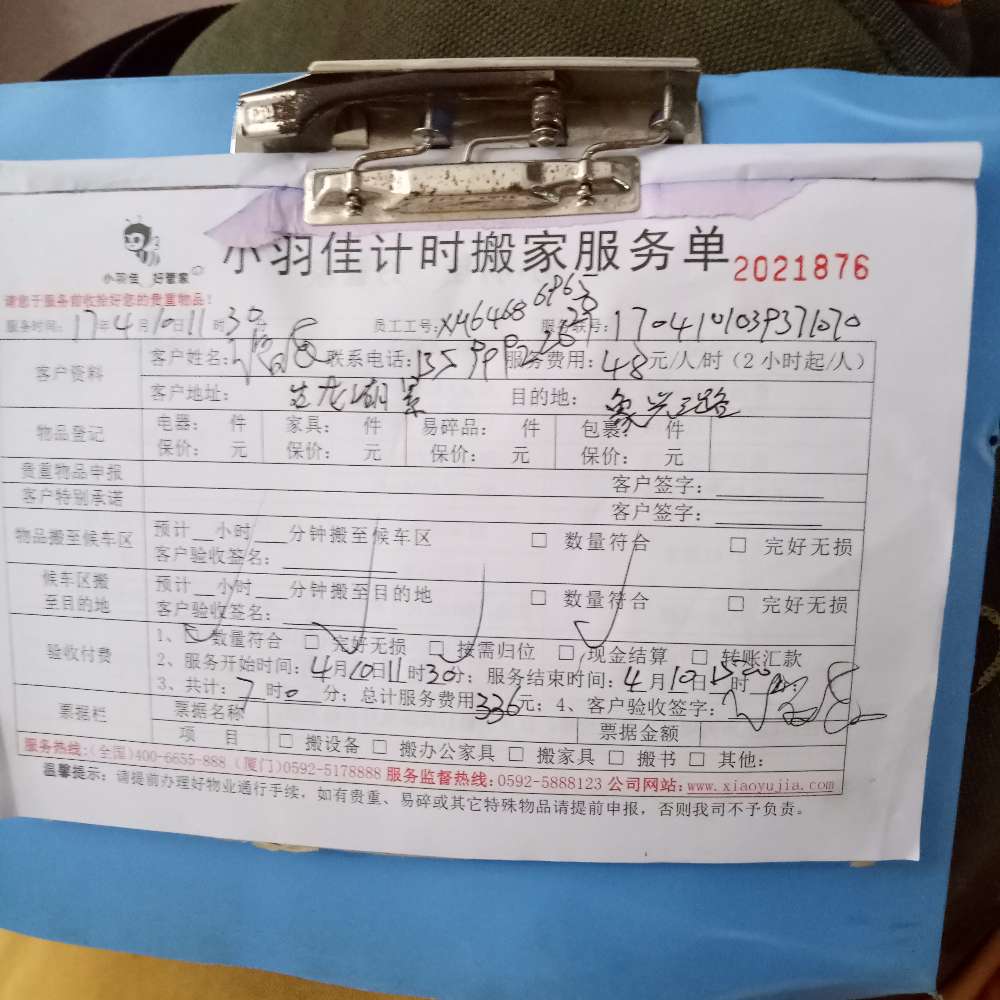 小羽佳计时搬家服务单 2021876
小羽佳 好管家
请您于服务前收拾好您的贵重物品！
服务时间：17年4月10日11时30分 员工工号：XM6468 6965 服务联号：
客户资料 客户姓名： 联系电话： 服务费用：48元/人/时（2小时起/人）
客户地址： 目的地：象兴三路
物品登记 电器： 件 家具： 件 易碎品： 件 包裹： 件
保价： 元 保价： 元 保价： 元 保价： 元
贵重物品申报 客户签字：
客户特别承诺 客户签字：
物品搬至候车区 预计__小时___分钟搬至候车区 □ 数量符合 □ 完好无损
客户验收签名：
候车区搬至目的地 预计__小时___分钟搬至目的地 □ 数量符合 □ 完好无损
客户验收签名：
验收付费 1、□ 数量符合 □ 完好无损 □ 按需归位 □ 现金结算 □ 转账汇款
2、服务开始时间：4月10日11时30分；服务结束时间：4月10日 时
3、共计：7时0分；总计服务费用336元；4、客户验收签字：
票据栏 票据名称 票据金额
项 目 □ 搬设备 □ 搬办公家具 □ 搬家具 □ 搬书 □ 其他：
服务热线：(全国)400-6655-888（厦门)0592-5178888 服务监督热线：0592-5888123 公司网站：www.xiaoyujia.com
温馨提示：请提前办理好物业通行手续，如有贵重、易碎或其它特殊物品请提前申报，否则我司不予负责。